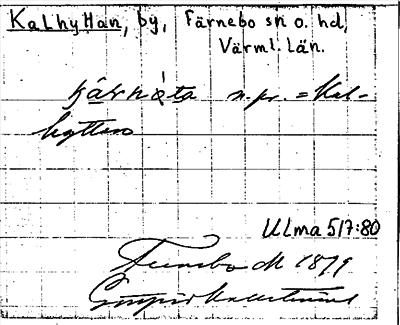 Kalhyttan, by, Färnebo sn o. hd,
Värml. län.
n. pr. = Kal-
hyttan
Ulma 517:80
Färnebo M 1879